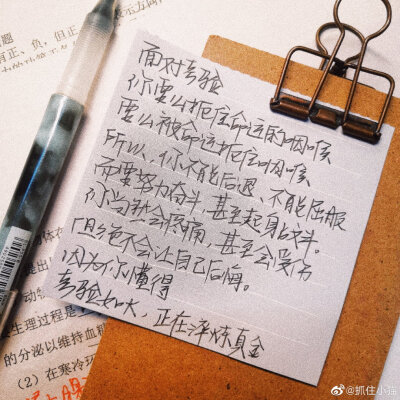 题
有正、负,但正
表示方向
面对考验
你要么扼住命运的咽喉
要么被命运扼住咽喉
所以、你不能后退、不能屈服
而要努力奋斗,甚至起身战斗。
你当然会疼痛,甚至会受伤
但绝不会让自己后悔。
因为你懂得
考验如火,正在淬炼真金
生理过程是
的分泌以维持血
(2)在寒冷环
@抓住小猫